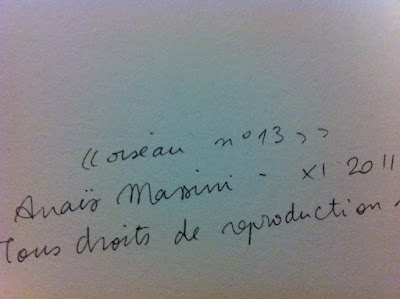 «oiseau n° 13»
Anaïs Massini - XI 2011
Tous droits de reproduction -